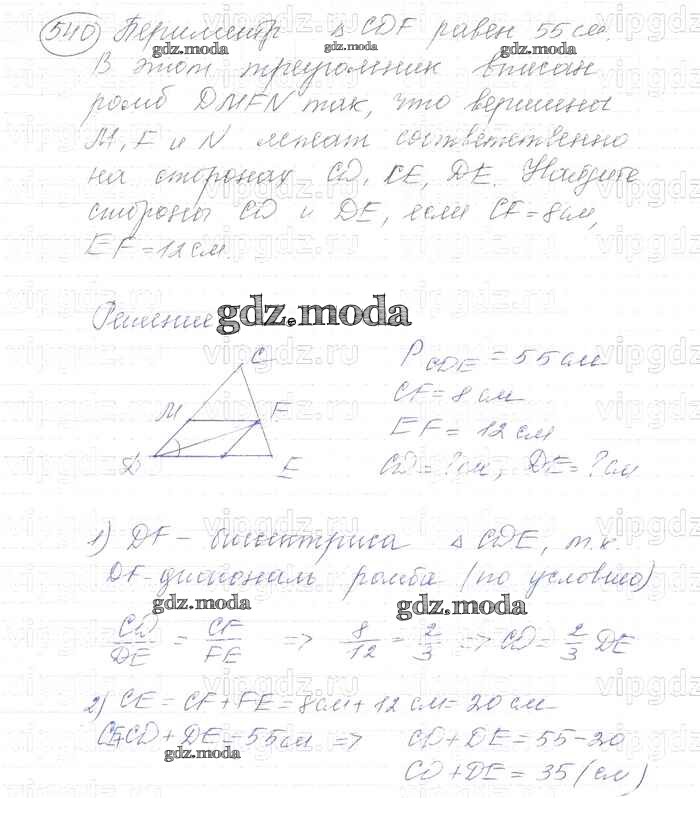 540 Периметр △ CDF равен 55 см.
gdz.moda
В этот треугольник вписан
ромб DMFN так, что вершины
M, F и N лежат соответственно
на сторонах CD, CE, DE. Найдите
стороны CD и DE, если CF = 8 см,
EF = 12 см.
Решение
gdz.moda
C
M F
D E
P CDE = 55 см
CF = 8 см
EF = 12 см
CD = ? см, DE = ? см
1) DF – биссектриса △ CDE, т.к.
DF-диагональ ромба (по условию)
gdz.moda
CD/DE = CF/FE => 8/12 = 2/3 => CD = 2/3 DE
2) CE = CF + FE = 8 см + 12 см = 20 см
CE+CD + DE = 55 см => CD + DE = 55 - 20
gdz.moda
CD + DE = 35 (см)
vipgdz.ru